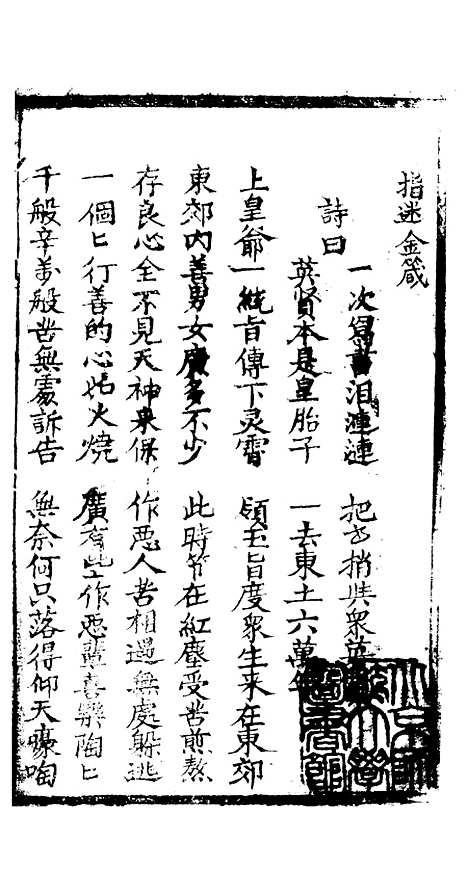 指迷金箴
詩曰 一次得書泪漣漣 把书捎與眾英
英賢本是皇胎子 一去東土六萬年
上皇爺一繼旨傳下灵霄 領玉旨度眾生来在東郊
東郊內善男女廣多不少 此時节在紅塵受苦煎熬
存良心全不見天神来保 作恶人苦相遇無處躲逃
一個匕行善的心如火燒 廣有些作恶輩喜樂陶匕
千般辛萬般苦無處訴告 無奈何只落得仰天嚎啕